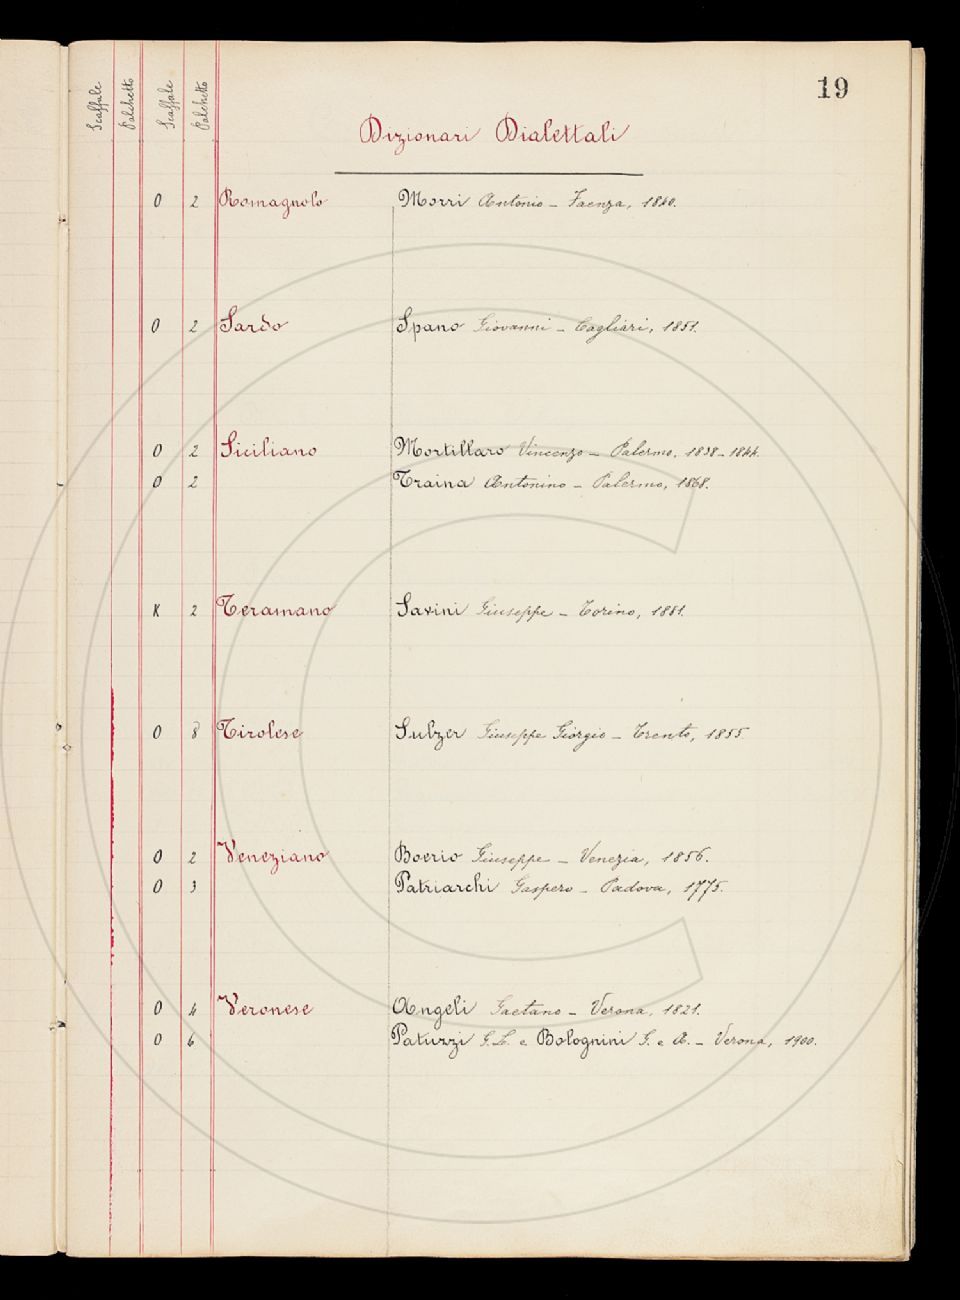 19
Scaffale Palchetto Scaffale Palchetto
Dizionari Dialettali
O 2 Romagnolo Morri Antonio - Faenza, 1840.
O 2 Sardo Spano Giovanni - Cagliari, 1851.
O 2 Siciliano Mortillaro Vincenzo - Palermo, 1838-1844.
O 2 Traina Antonino - Palermo, 1868.
K 2 Teramano Savini Giuseppe - Torino, 1881.
O 8 Tirolese Sulzer Giuseppe Giorgio - Trento, 1855
O 2 Veneziano Boerio Giuseppe - Venezia, 1856.
O 3 Patriarchi Gaspero - Padova, 1775.
O 4 Veronese Angeli Gaetano - Verona, 1821.
O 6 Patuzzi G. L. e Bolognini G. e A. - Verona, 1900.